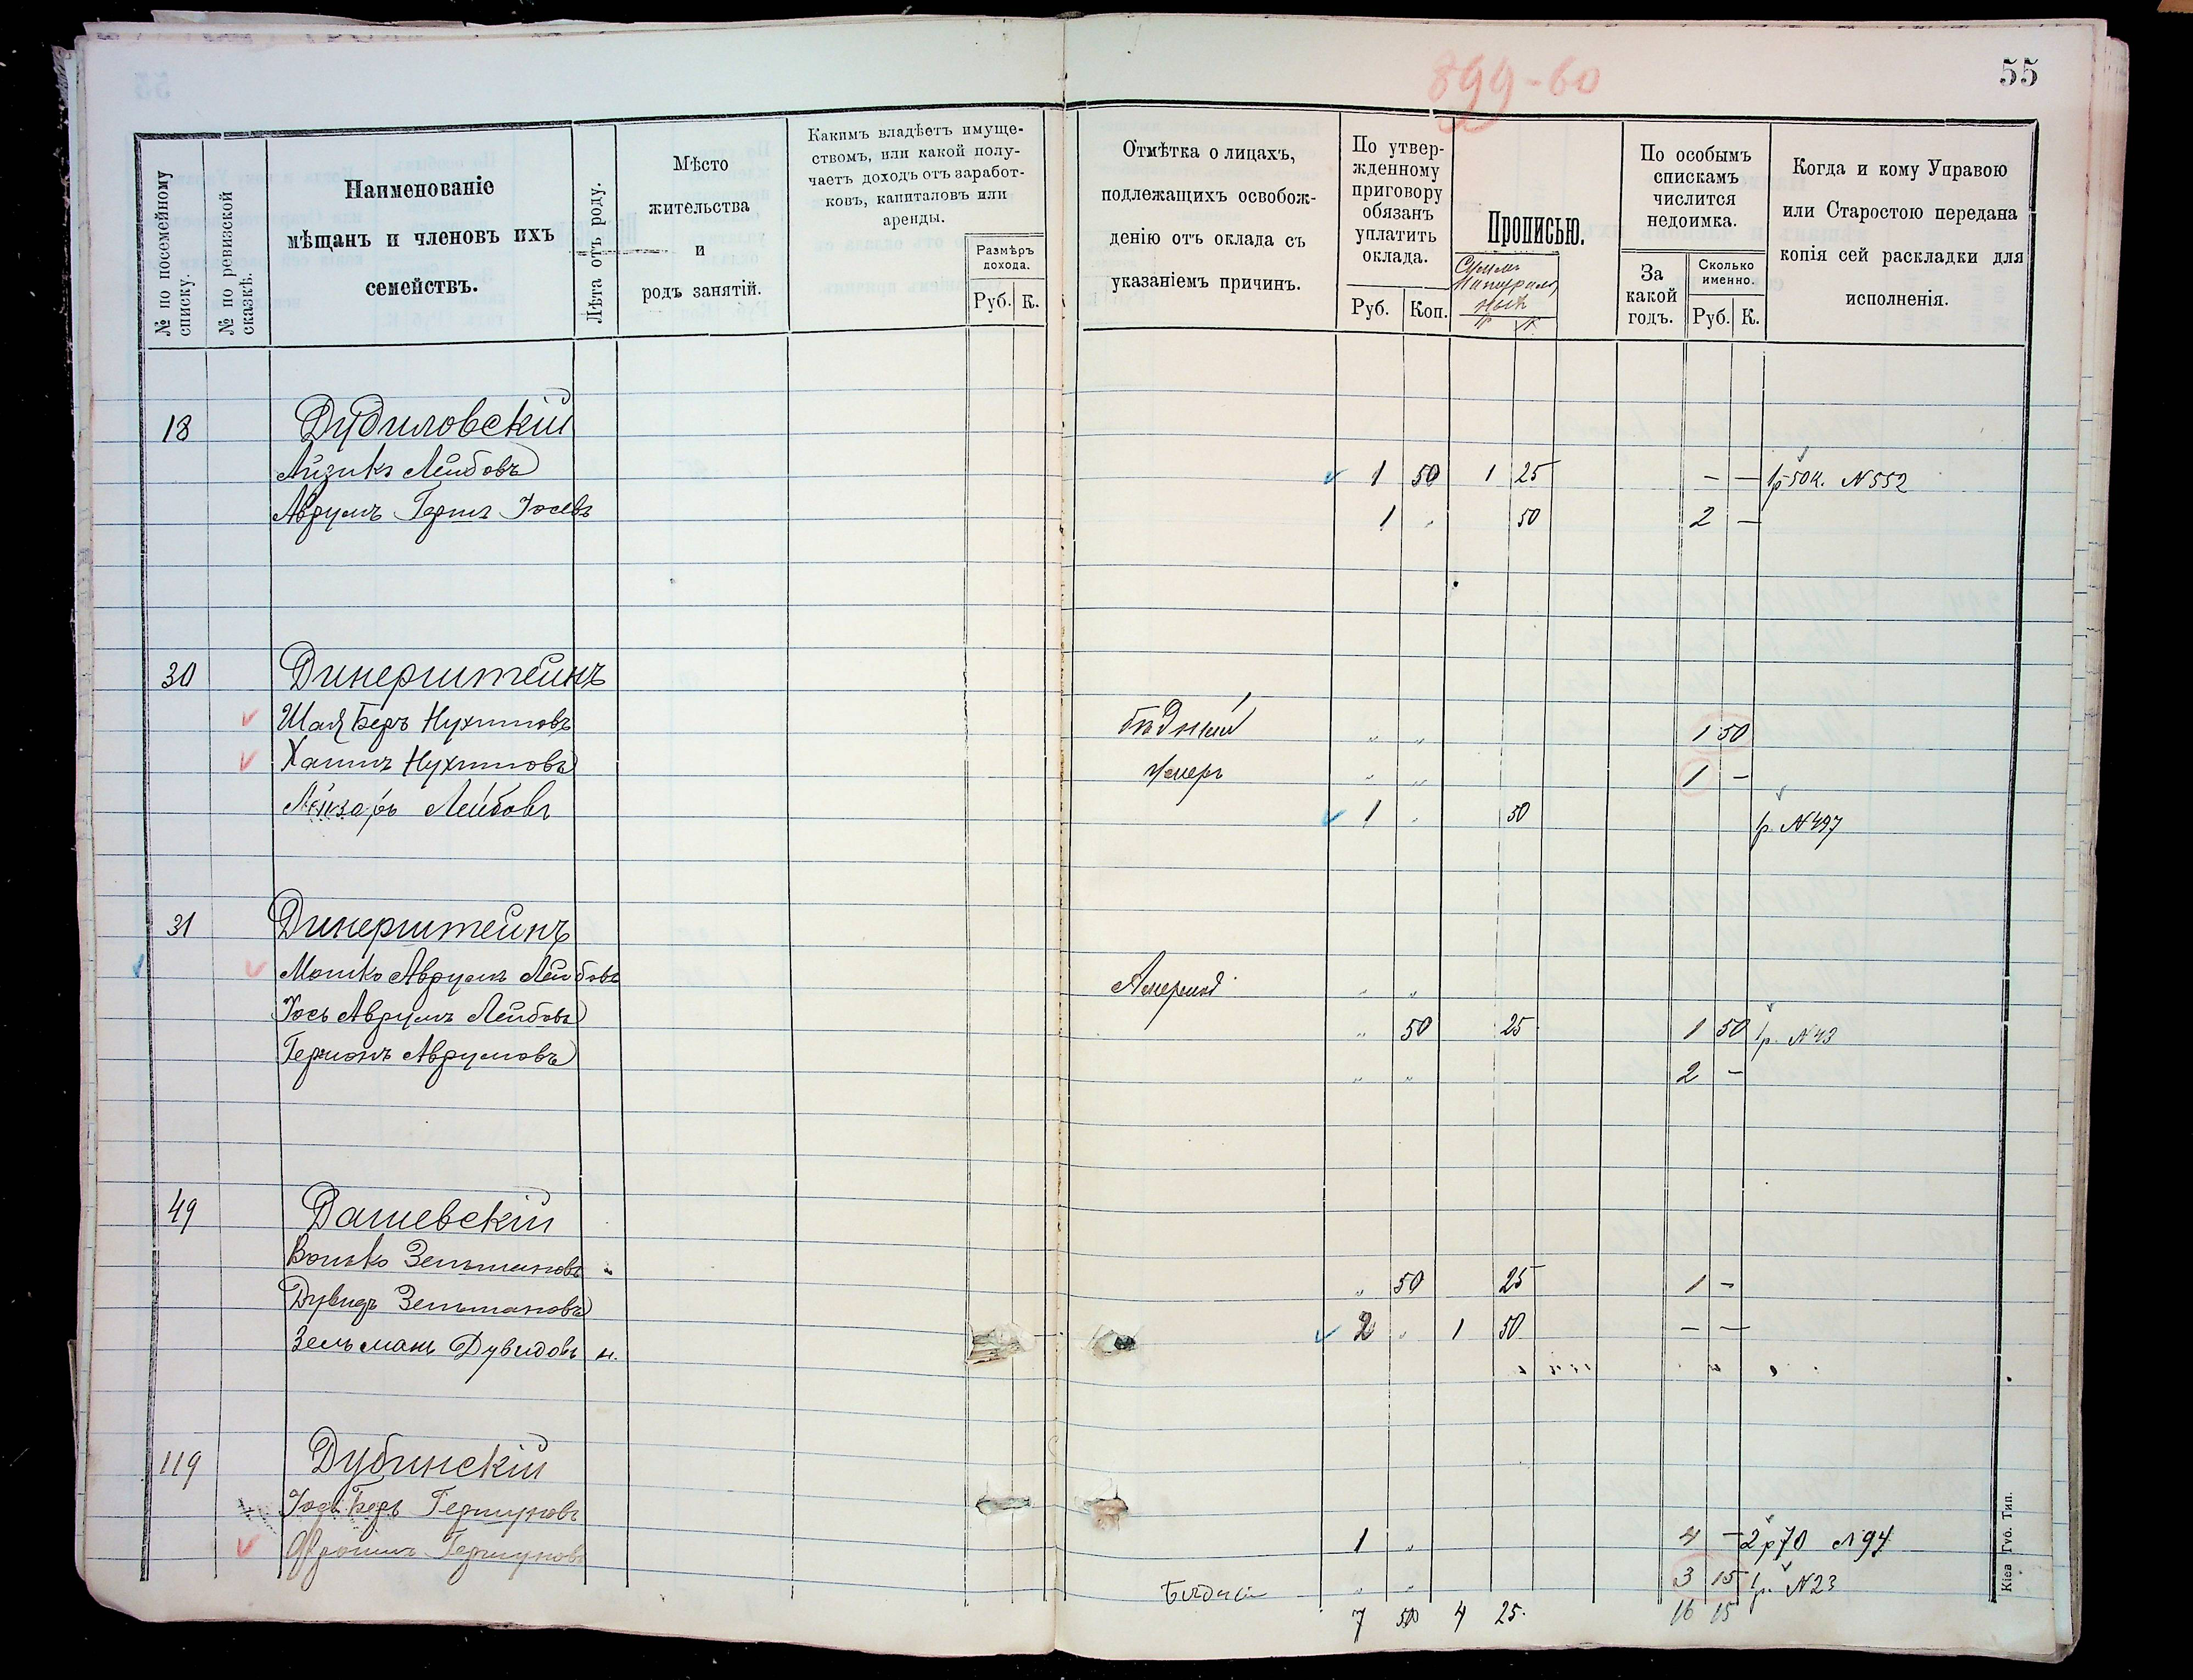 899-60
55
№ по посемейному списку.
№ по ревизской сказкѣ.
Наименованіе
мѣщанъ и членовъ ихъ
семействъ.
Лѣта отъ роду.
Мѣсто
жительства
и
родъ занятій.
Какимъ владѣетъ имуще-
ствомъ, или какой полу-
чаетъ доходъ отъ заработ-
ковъ, капиталовъ или
аренды.
Размѣръ
дохода.
Руб. К.
Отмѣтка о лицахъ,
подлежащихъ освобож-
денію отъ оклада съ
указаніемъ причинъ.
По утвер-
жденному
приговору
обязанъ
уплатить
оклада.
Руб. Коп.
Прописью.
По особымъ
спискамъ
числится
недоимка.
За
какой
годъ.
Сколько
именно.
Руб. К.
Когда и кому Управою
или Старостою передана
копія сей раскладки для
исполненія.
18 Дудиловскій
Айзикъ Лейбовъ 1 50 1 25 — — 1р 50к. N 552
Аврумъ Гершъ Іосевъ 1 „ 50 2 —
30 Динерштейнъ
Шая Беръ Нухимовъ бѣдный „ „ 1 50
Хаимъ Нухимовъ Умеръ „ „ 1 —
Лейзаръ Лейбовъ 1 „ 50 1р. N 497
31 Динерштейнъ
Мошко Аврумъ Лейбовъ „ „
Іось Аврумъ Лейбовъ „ 50 25 1 50 1р. N 43
Гершонъ Аврумовъ „ „ 2 —
49 Дашевскій
Волько Зельмановъ „ 50 25 1 —
Дувидъ Зельмановъ 2 „ 1 50 — —
Зельманъ Дувидовъ н.
119 Дубинскій
Іось Беръ Гершуновъ 1 „ 4 — 2р 70 N 94
Фроимъ Гершуновъ „ „ 3 15 1р. N 23
7 50 4 25. 16 15
Кіев. Губ. Тип.